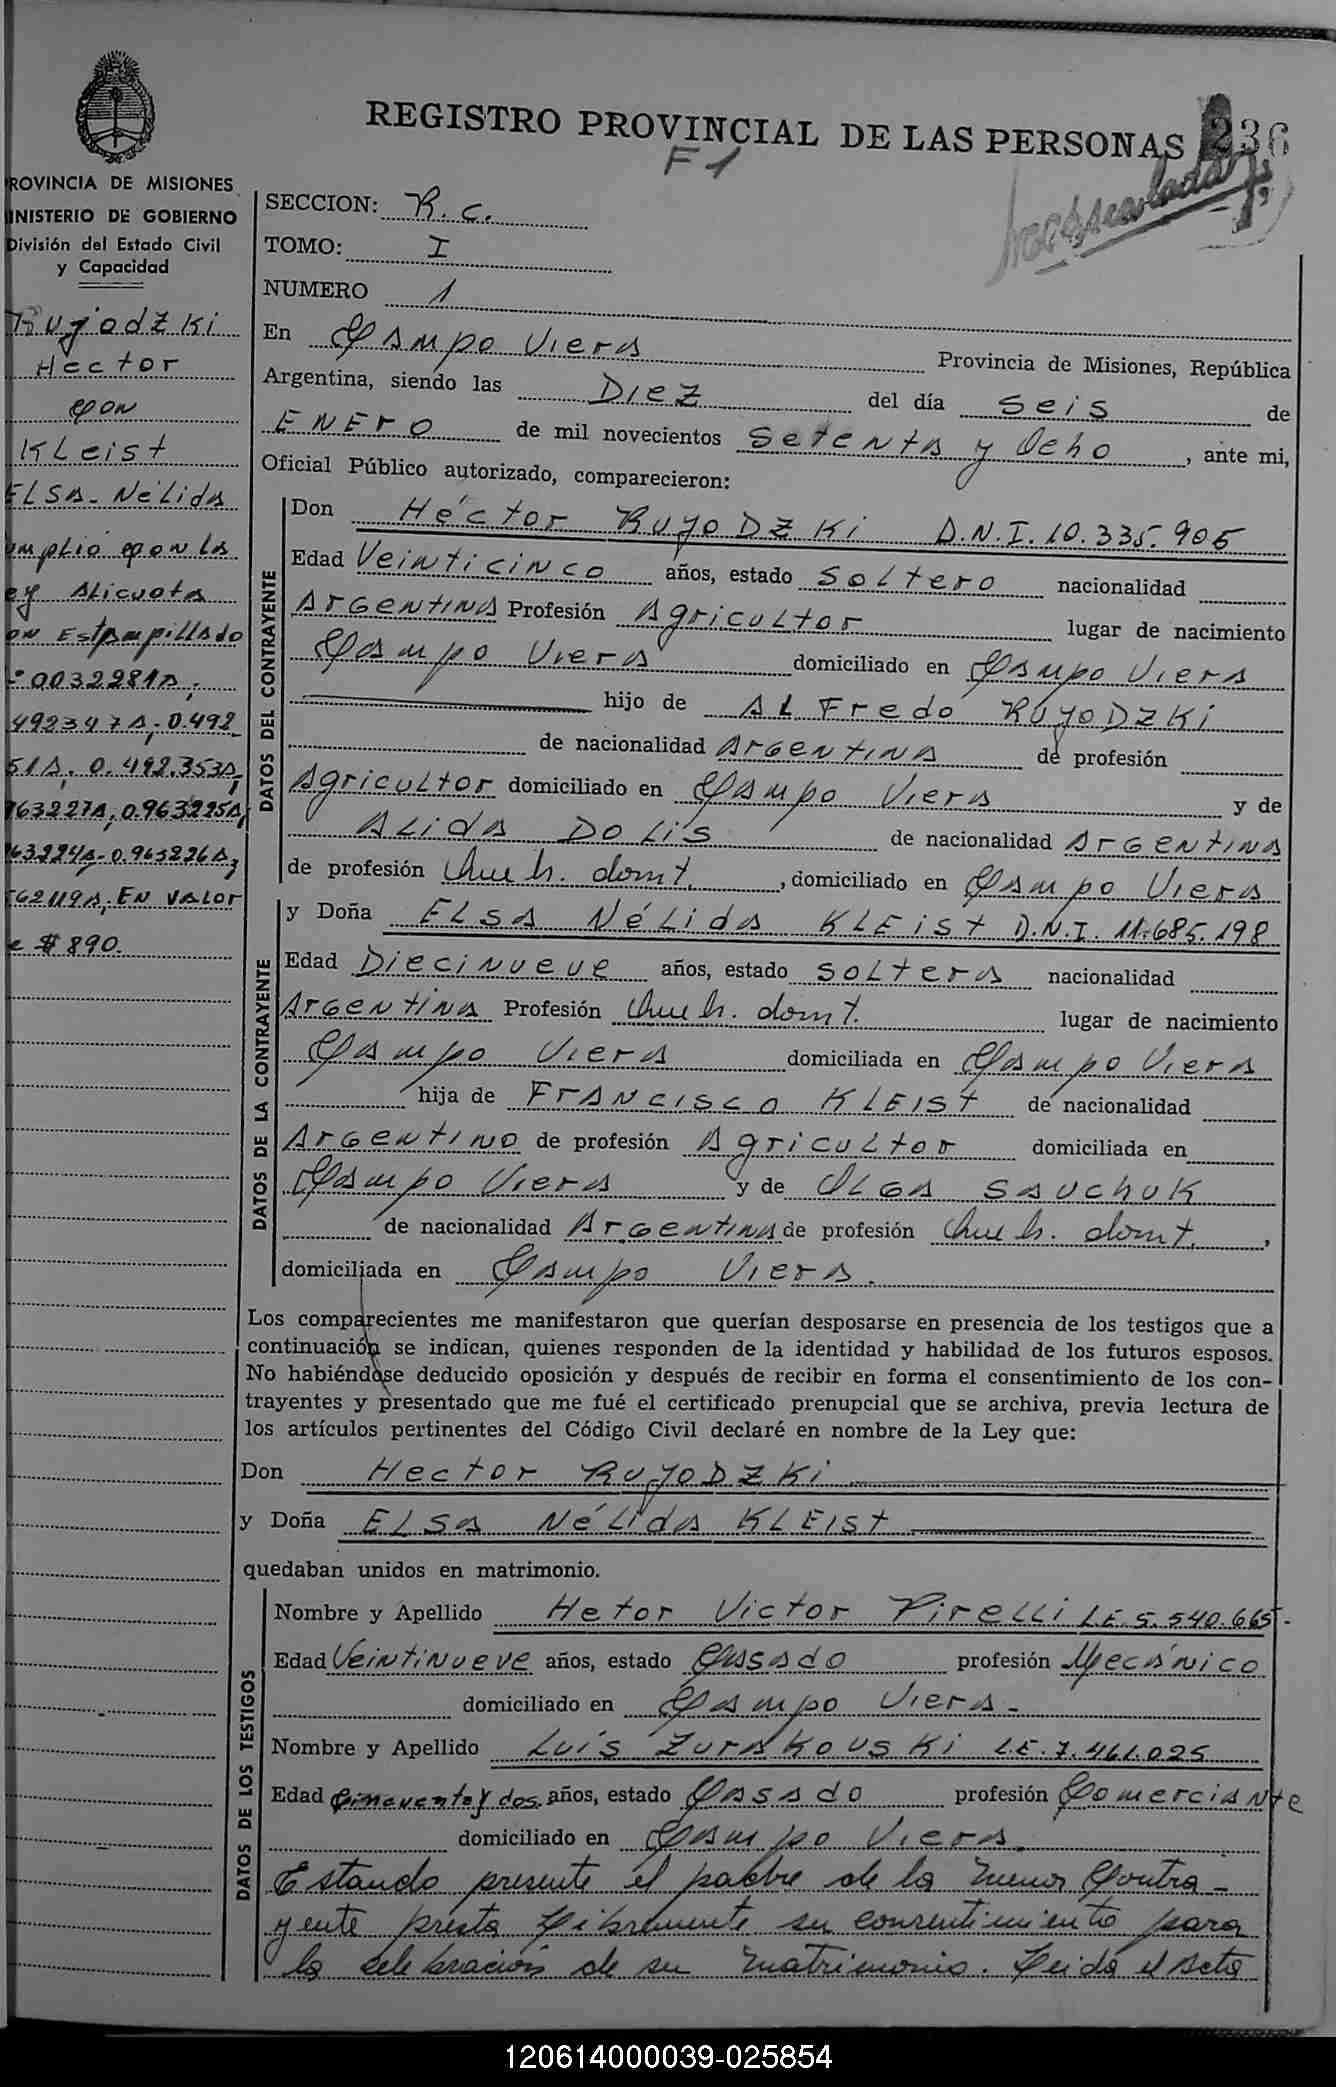 REGISTRO PROVINCIAL DE LAS PERSONAS
236
F 1
PROVINCIA DE MISIONES
MINISTERIO DE GOBIERNO
División del Estado Civil
y Capacidad
Rujodzki
Hector
con
Kleist
Elsa - Nélida
cumplió con la
ley Alicuota
con Estampillado
0032281A;
492347A; 0.492
51A, 0.492.353A,
963227A; 0.963225A;
63224A - 0.963226A;
62119A; En valor
de $ 890.
SECCION: R. C.
TOMO: I
NUMERO 1
En Campo Viera Provincia de Misiones, República
Argentina, siendo las Diez del día seis de
ENERO de mil novecientos setenta y Ocho, ante mi,
Oficial Público autorizado, comparecieron:
DATOS DEL CONTRAYENTE
Don Héctor RUJODZKi D.N.I. 10.335.906
Edad Veinticinco años, estado soltero nacionalidad
Argentina Profesión Agricultor lugar de nacimiento
Campo Viera domiciliado en Campo Viera
hijo de ALFredo RUJODZKi
de nacionalidad Argentina de profesión
Agricultor domiciliado en Campo Viera y de
Alida Dolis de nacionalidad Argentina
de profesión domt., domiciliado en Campo Viera
DATOS DE LA CONTRAYENTE
y Doña ELSA Nélida KLEist D.N.I. 11.685.198
Edad Diecinueve años, estado soltera nacionalidad
Argentina Profesión domt. lugar de nacimiento
Campo Viera domiciliada en Campo Viera
hija de Francisco KLEIST de nacionalidad
Argentino de profesión Agricultor domiciliada en
Campo Viera y de OLGA SAUCHUK
de nacionalidad Argentina de profesión domt.,
domiciliada en Campo Viera.
Los comparecientes me manifestaron que querían desposarse en presencia de los testigos que a
continuación se indican, quienes responden de la identidad y habilidad de los futuros esposos.
No habiéndose deducido oposición y después de recibir en forma el consentimiento de los con-
trayentes y presentado que me fué el certificado prenupcial que se archiva, previa lectura de
los artículos pertinentes del Código Civil declaré en nombre de la Ley que:
Don Hector RUJODZKi
y Doña ELSA Nélida KLEIst
quedaban unidos en matrimonio.
DATOS DE LOS TESTIGOS
Nombre y Apellido Hetor Victor Pirelli L.E. 5.540.665-
Edad Veintinueve años, estado Casado profesión Mecánico
domiciliado en Campo Viera -
Nombre y Apellido Luis Zurakouski L.E. 7.461.025
Edad Cincuenta y dos años, estado Casado profesión Comerciante
domiciliado en Campo Viera.
Estando presente el padre de la menor Contra-
yente presta libremente su consentimiento para
la celebración de su matrimonio. Leida el acta
120614000039-025854